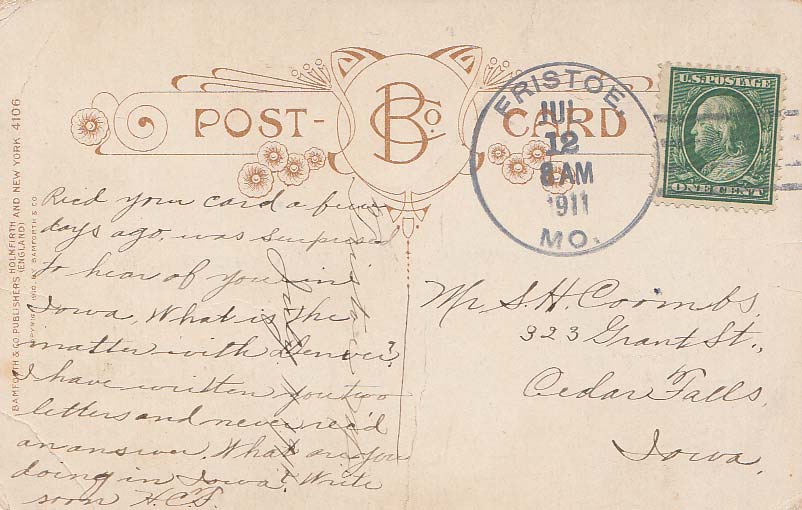 POST-
BCo.
CARD
FRISTOE,
JUL
12
8 AM
1911
MO.
U.S. POSTAGE
ONE CENT
BAMFORTH & CO. PUBLISHERS HOLMFIRTH AND NEW YORK 4106
(ENGLAND)
COPYRIGHT 1910, BY BAMFORTH & CO
Ric'd your card a few
days ago, was surprised
to hear of you in
Iowa. What is the
matter with Denver?
I have written you two
letters and never rec'd
an answer. What are you
doing in Iowa? Write
soon H.C.F.
Fristoe
July
Mr S. H. Coombs,
323 Grant St.,
Cedar Falls,
Iowa.